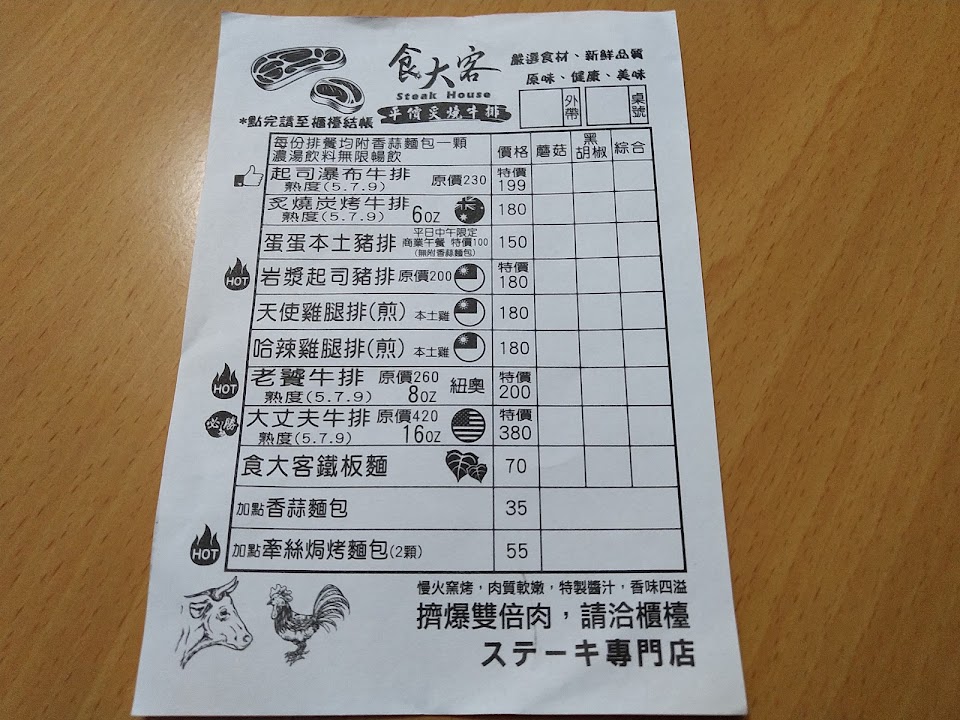 食大客
Steak House
平價炙燒牛排
嚴選食材、新鮮品質
原味、健康、美味
外帶
桌號
*點完請至櫃檯結帳
每份排餐均附香蒜麵包一顆
濃湯飲料無限暢飲
價格 蘑菇 黑胡椒 綜合
起司瀑布牛排 原價230 特價
熟度(5.7.9) 199
炙燒炭烤牛排 6oz 180
熟度(5.7.9)
蛋蛋本土豬排 平日中午限定 150
商業午餐 特價100
(無附香蒜麵包)
HOT 岩漿起司豬排 原價200 特價
180
天使雞腿排(煎) 本土雞 180
哈辣雞腿排(煎) 本土雞 180
HOT 老饕牛排 原價260 紐奧 特價
熟度(5.7.9) 8oz 200
必勝 大丈夫牛排 原價420 特價
熟度(5.7.9) 16oz 380
食大客鐵板麵 70
加點香蒜麵包 35
HOT 加點牽絲焗烤麵包(2顆) 55
慢火窯烤，肉質軟嫩，特製醬汁，香味四溢
擠爆雙倍肉，請洽櫃檯
ステーキ專門店